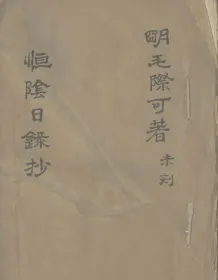 明毛際可著
未刻
恒陰日錄抄